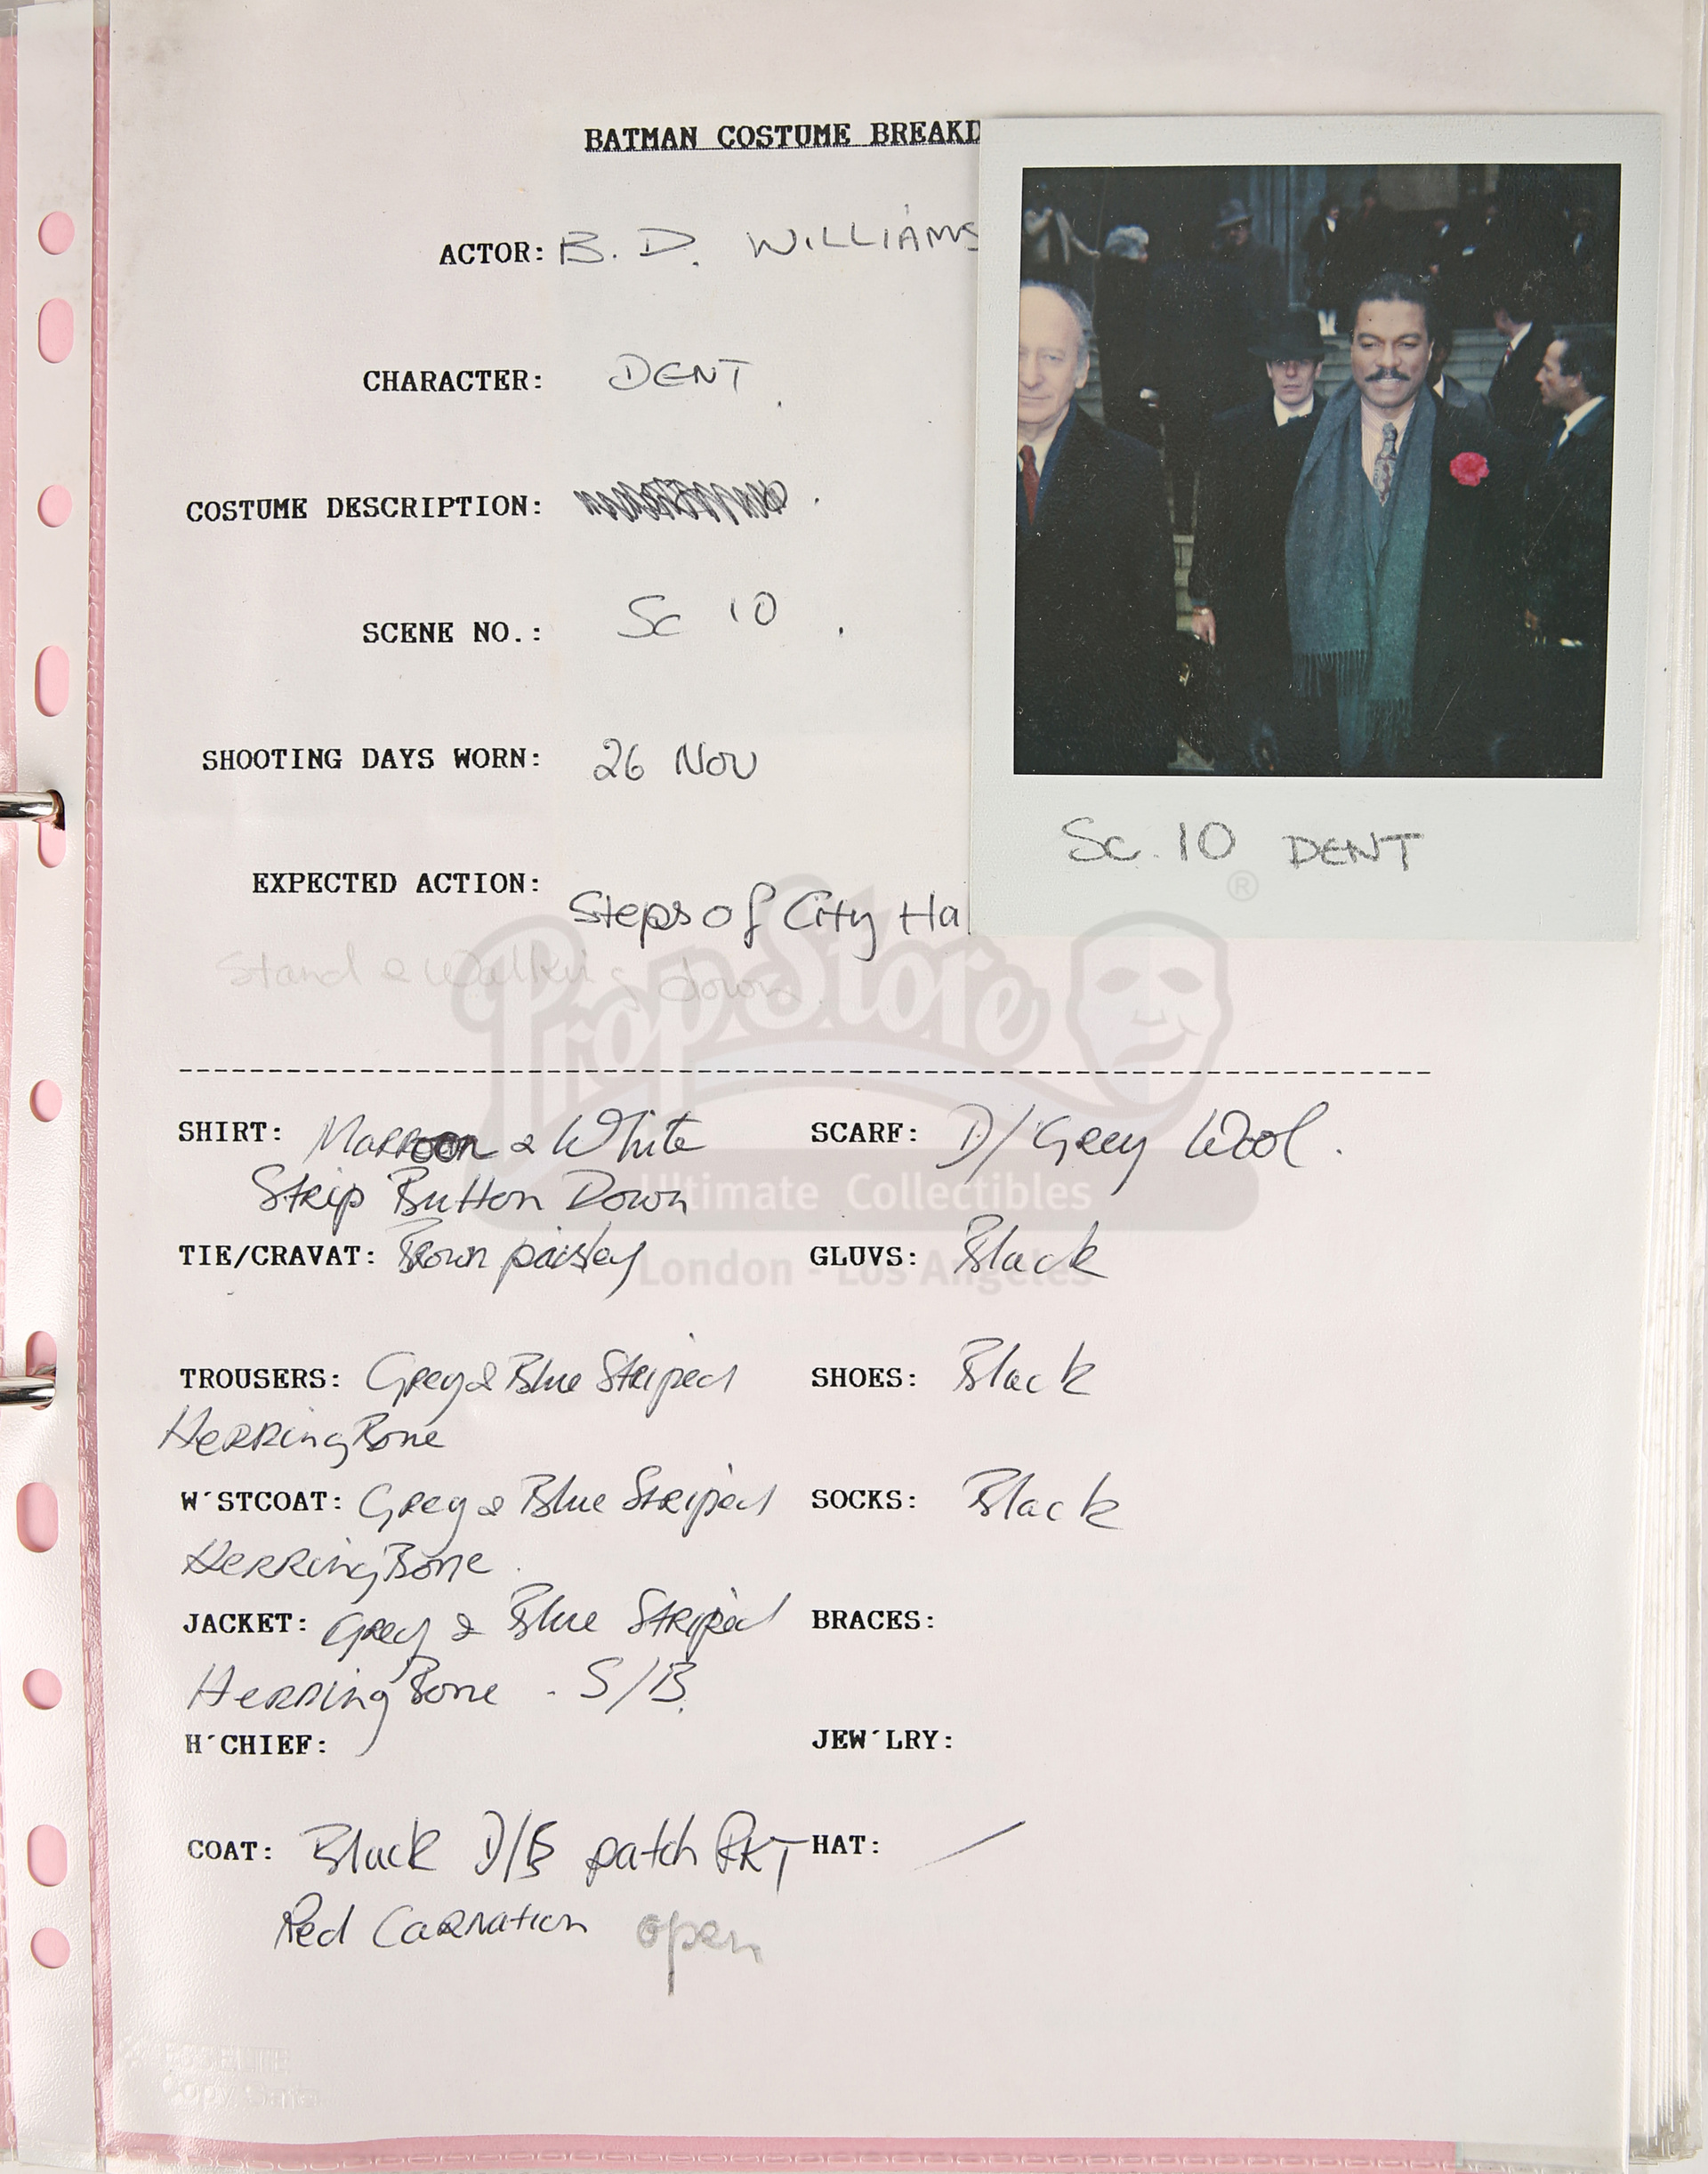 BATMAN COSTUME BREAKD
ACTOR: B. D. WILLIAMS
CHARACTER: DENT
COSTUME DESCRIPTION:
SCENE NO.: Sc 10
SHOOTING DAYS WORN: 26 Nov
EXPECTED ACTION: Steps of City Ha
Stand & Walking down
Sc. 10 DENT
®
PropStore
Ultimate Collectibles
London - Los Angeles
SHIRT: Marroon & White
Strip Button Down
SCARF: D/Grey Wool.
TIE/CRAVAT: Brown paisley
GLUVS: Black
TROUSERS: Grey & Blue Striped
HerringBone
SHOES: Black
W'STCOAT: Grey & Blue Striped
HerringBone
SOCKS: Black
JACKET: Grey & Blue Striped
HerringBone - S/B.
BRACES:
H'CHIEF:
JEW'LRY:
COAT: Black D/B patch PKT
Red Carnation open
HAT: /
ESSELTE
Copy Safe